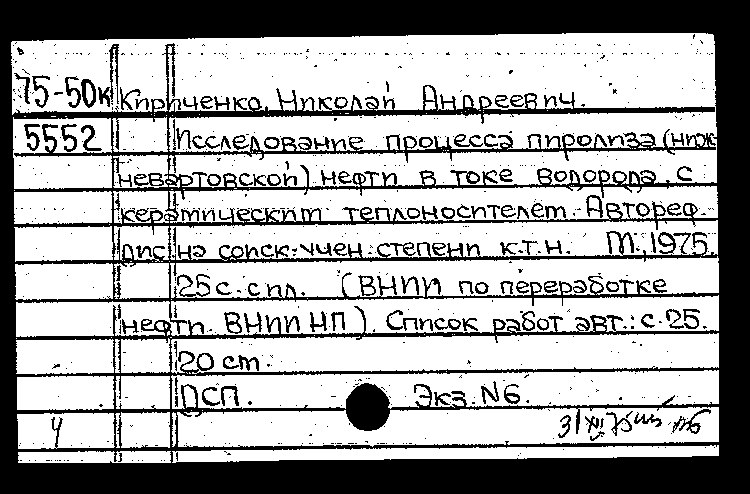 75-50к Кириченко, Николай Андреевич.
5552 Исследование процесса пиролиза (ниж-
невартовской) нефти в токе водорода, с
керамическим теплоносителем. Автореф.
дис. на соиск. учен. степени к.т.н. М., 1975.
25 с. с пл. (ВНИИ по переработке
нефти. ВНИИ НП). Список работ авт.: с. 25.
20 ст.
ДСП. Экз. N6.
4 31 XII 75